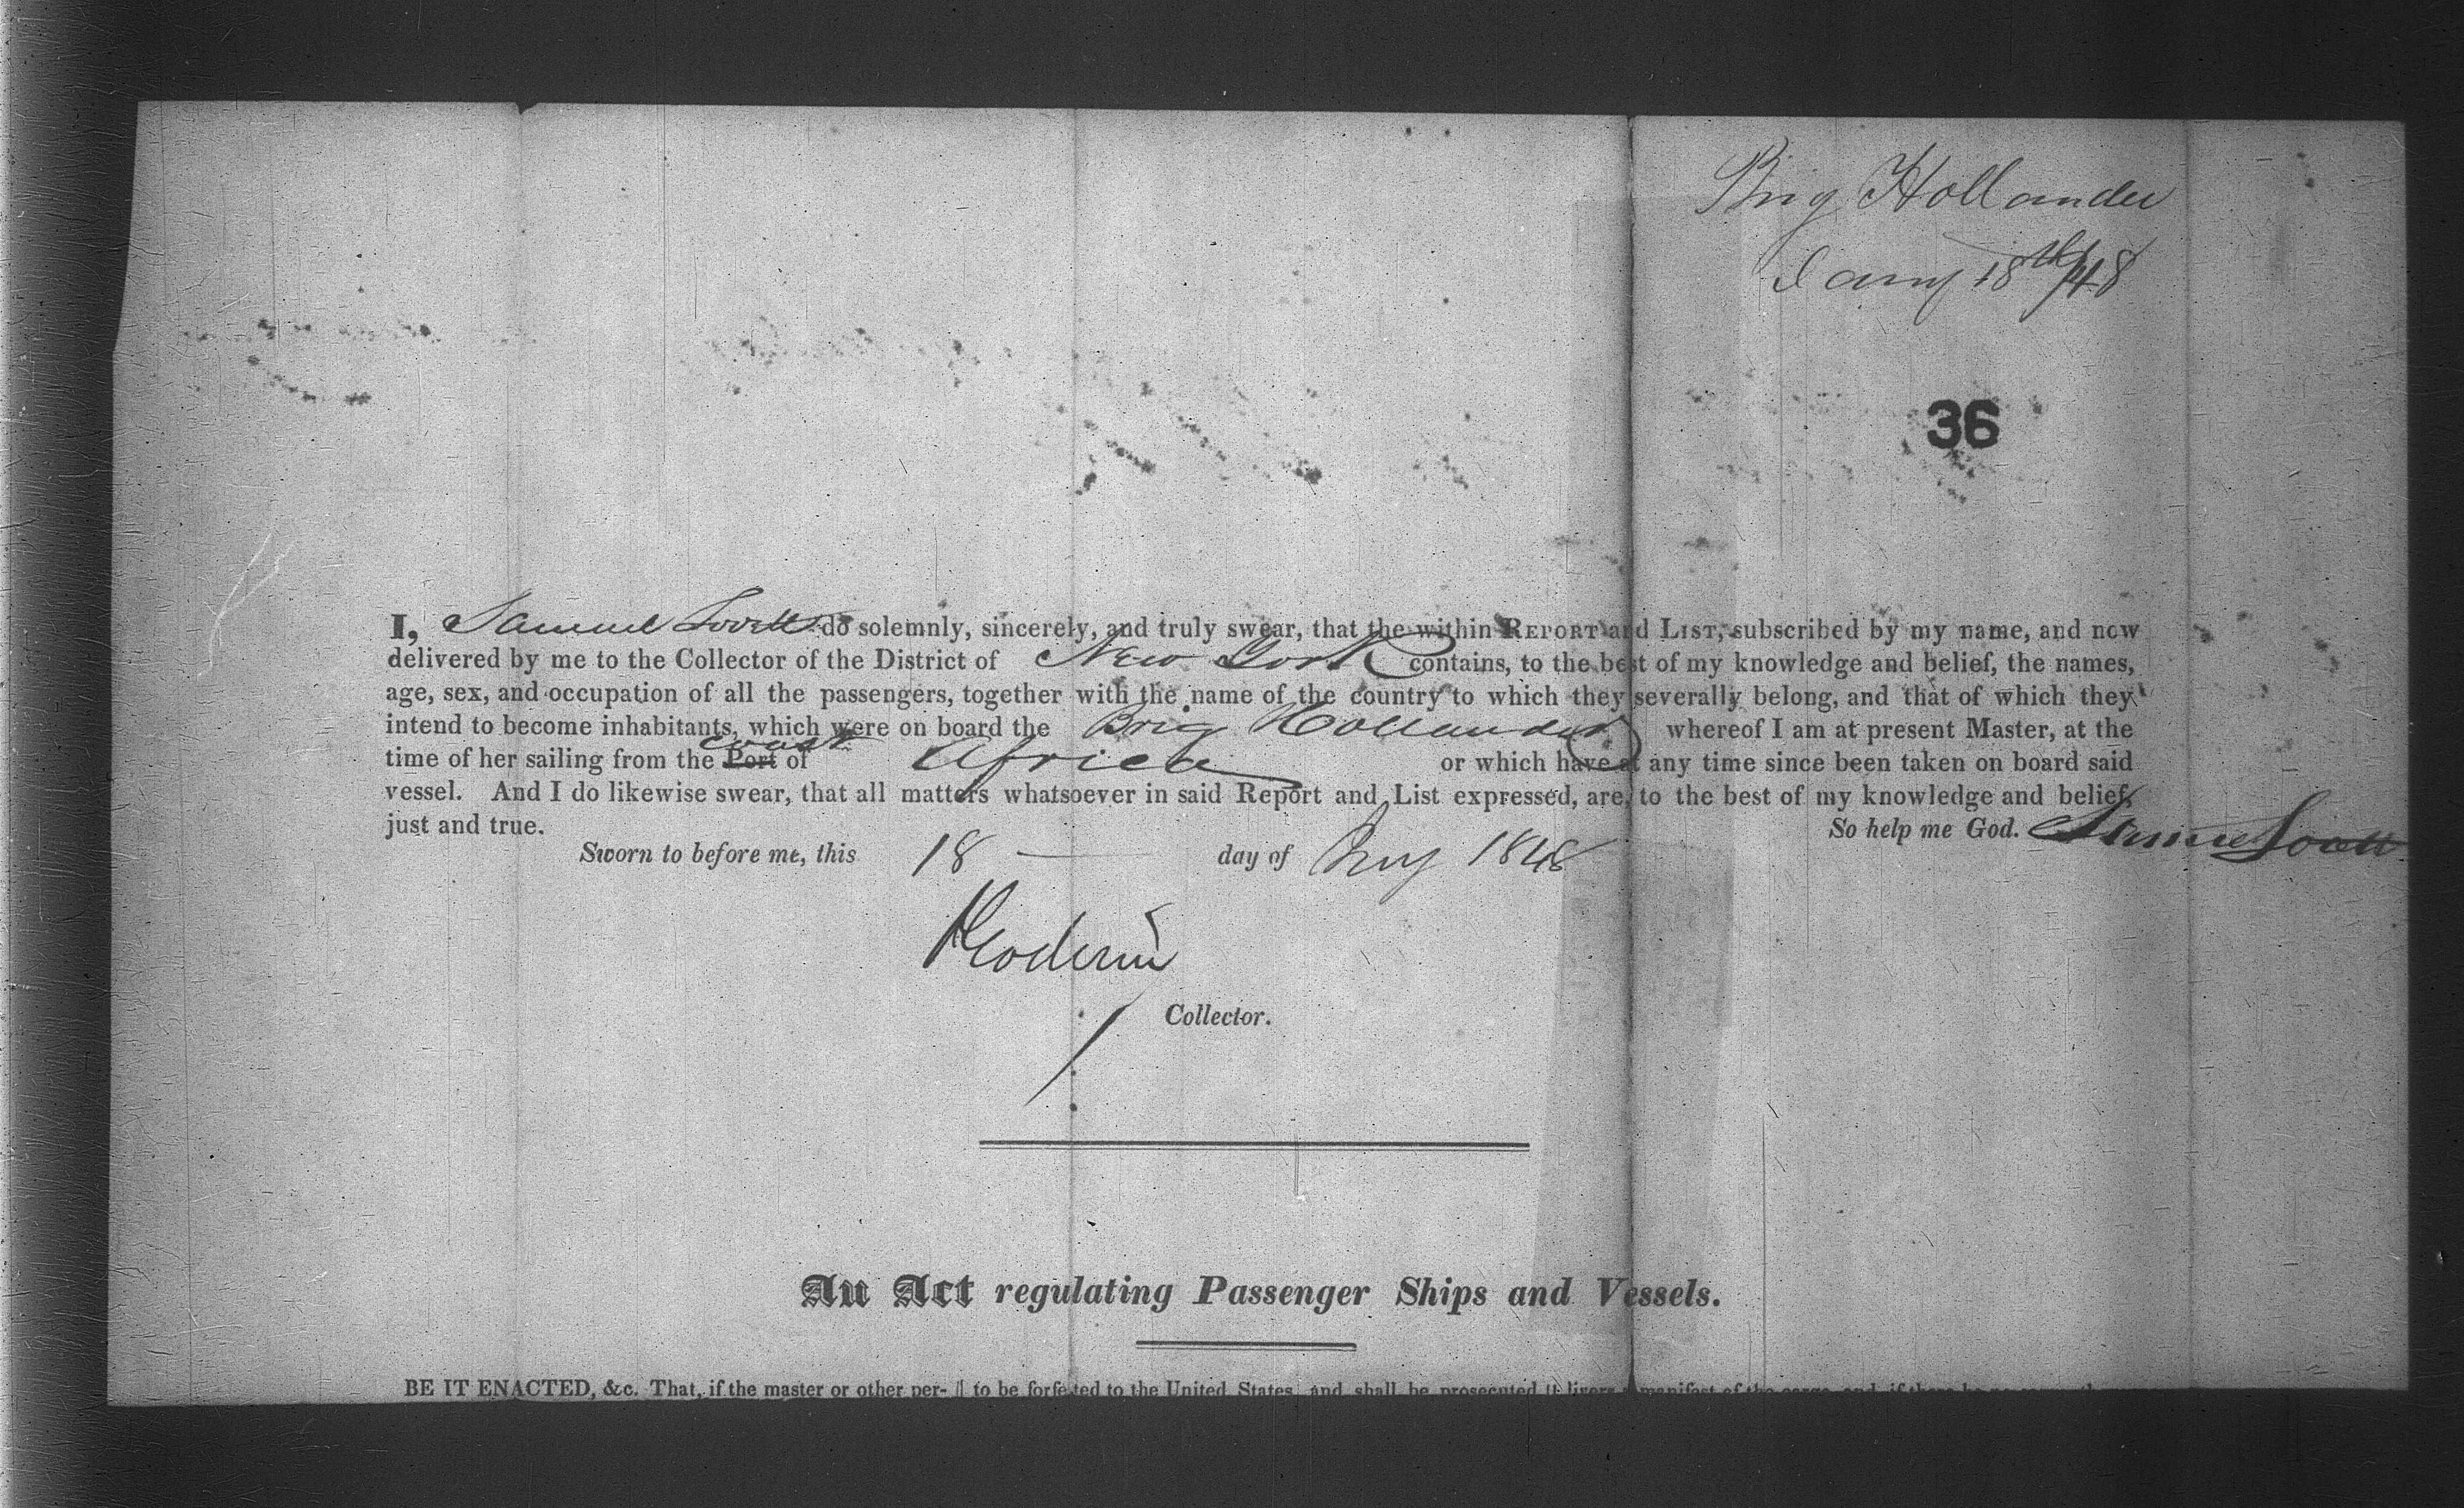 Brig Hollander
Jany 18th/48
36
I, Samuel Lovett do solemnly, sincerely, and truly swear, that the within REPORT and LIST, subscribed by my name, and now
delivered by me to the Collector of the District of New York contains, to the best of my knowledge and belief, the names,
age, sex, and occupation of all the passengers, together with the name of the country to which they severally belong, and that of which they
intend to become inhabitants, which were on board the Brig Hollander whereof I am at present Master, at the
coast
time of her sailing from the Port of Africa or which have at any time since been taken on board said
vessel. And I do likewise swear, that all matters whatsoever in said Report and List expressed, are, to the best of my knowledge and belief,
just and true. So help me God. Samuel Lovett
Sworn to before me, this 18 day of Jny 1848
Collector.
An Act regulating Passenger Ships and Vessels.
BE IT ENACTED, &c. That, if the master or other per- to be forfeited to the United States, and shall be prosecuted